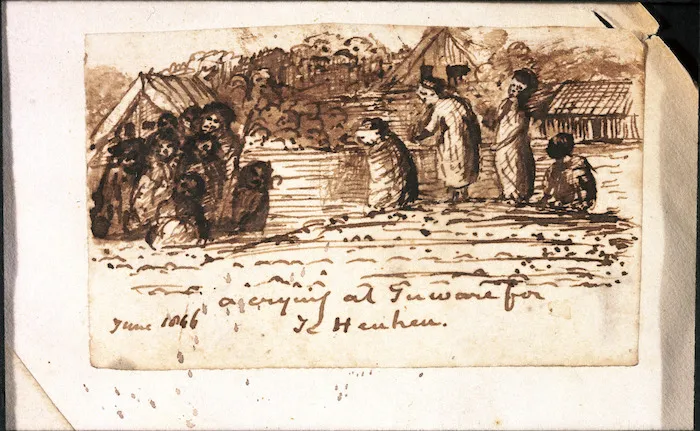 a crying at Tuware for
June 1866 Te Heuheu.